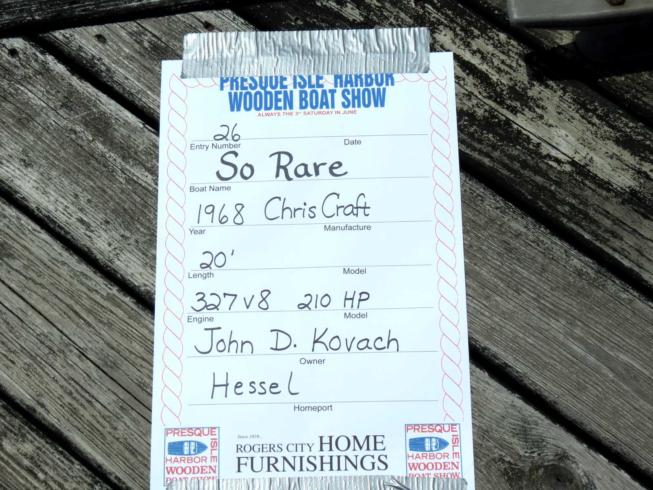 PRESQUE ISLE HARBOR
WOODEN BOAT SHOW
ALWAYS THE 3rd SATURDAY IN JUNE
26
Entry Number Date
So Rare
Boat Name
1968 Chris Craft
Year Manufacture
20'
Length Model
327 V8 210 HP
Engine Model
John D. Kovach
Owner
Hessel
Homeport
PRESQUE ISLE
HARBOR
WOODEN
BOAT SHOW
Since 1959..
ROGERS CITY HOME
FURNISHINGS
PRESQUE ISLE
HARBOR
WOODEN
BOAT SHOW